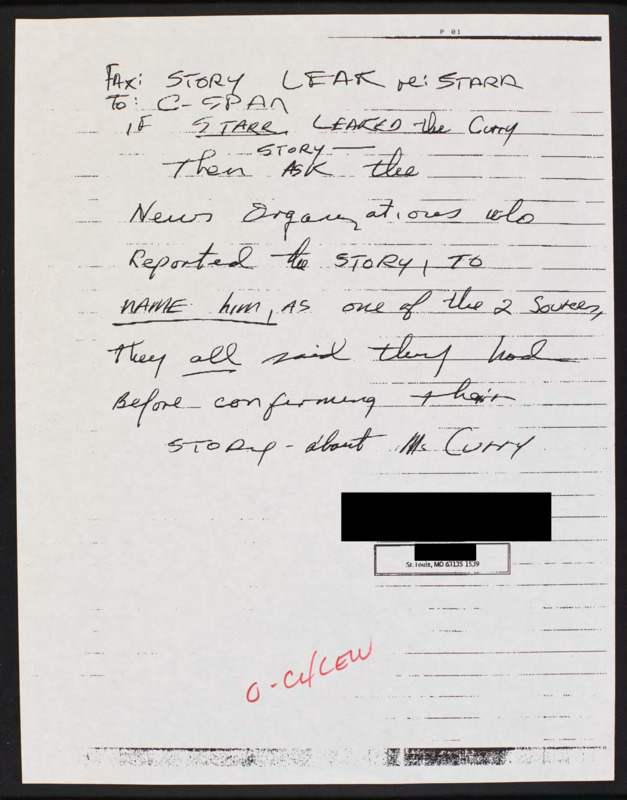 P 01
FAX: STORY LEAK re: STARR
To: C-SPAN
IF STARR LEAKED the Curry
STORY —
Then ASK the
News Organizations who
Reported the STORY, TO
NAME him, AS one of the 2 Sources,
they all said they had
Before confirming their
STORY - about Ms CURRY
St. Louis, MO 63135 1539